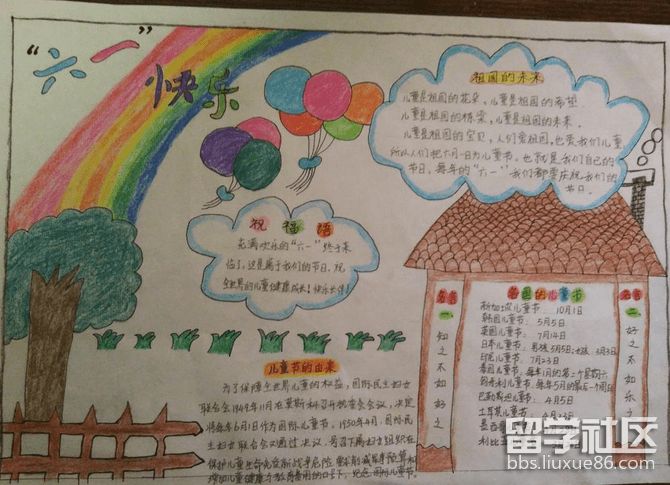 “六一”
快乐
祖国的未来
儿童是祖国的花朵、儿童是祖国的希望
儿童是祖国的栋梁，儿童是祖国的未来。
儿童是祖国的宝贝，人们爱祖国，也爱我们儿童
所以人们把六月一日为儿童节。也就是我们自己的
节日、每年的“六一”我们都要庆祝我们的
节日。
祝福语
充满欢乐的“六一”终于来
临了，这是属于我们的节日，祝
全世界的儿童健康成长！快乐长伴
名言一
知之不如好之
各国的儿童节
新加坡儿童节：10月1日
韩国儿童节：5月5日
英国儿童节：7月14日
日本儿童节：男孩5月5日；女孩：3月3日
印尼儿童节：7月23日
泰国儿童节：每年1月的第二个星期六
匈牙利儿童节：每年5月的最后一个周日
巴勒斯坦儿童节：4月5日
土耳其儿童节：4月23日
名言二
好之不如乐之
儿童节的由来
为了保障全世界儿童的权益，国际民主妇女
联合会1949年11月在莫斯科召开执委会会议，决定
将每年6月1日作为国际儿童节。1950年4月，国际民
主妇女联合会又通过决议，号召下属妇女组织在
留学社区
bbs.liuxue86.com